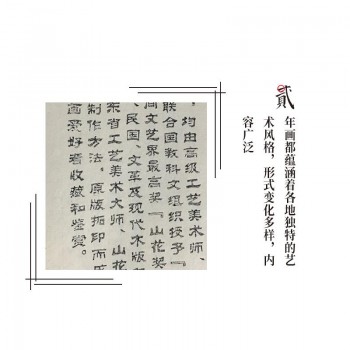 貳
年画都蕴涵着各地独特的艺
术风格，形式变化多样，内
容广泛
均由高级工艺美术师、
联合国教科文组织授予『
间文艺界最高奖『山花奖
、民国、文革及现代木版
东省工艺美术大师、山花
制作方法，原版拓印而成
画爱好者收藏和鉴赏。